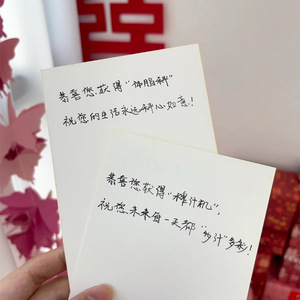 恭喜您获得“体脂秤”
祝您的生活永远秤心如意！
恭喜您获得“榨汁机”，
祝您未来每一天都“多汁”多彩！
囍